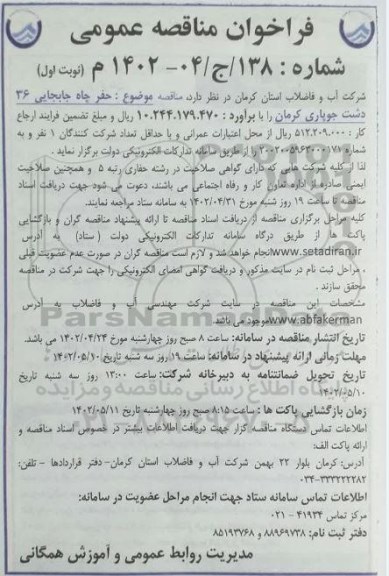 فراخوان مناقصه عمومی
شماره : ۱۳۸/ج/۰۴- ۱۴۰۲ م (نوبت اول)
شرکت آب و فاضلاب استان کرمان در نظر دارد، مناقصه موضوع : حفر چاه جابجایی ۳۶
دشت جوپاری کرمان را با برآورد : ۱۰.۲۴۴.۱۷۹.۴۷۰ ریال و مبلغ تضمین فرایند ارجاع
کار : ۵۱۲.۲۰۹.۰۰۰ ریال از محل اعتبارات عمرانی و با حداقل تعداد شرکت کنندگان ۱ نفر و به
شماره ۲۰۰۲۰۰۵۹۶۳۰۰۰۱۷۸ را از طریق سامانه تدارکات الکترونیکی دولت برگزار نماید .
لذا از کلیه شرکت هایی که دارای گواهی صلاحیت در رشته حفاری رتبه ۵ و همچنین صلاحیت
ایمنی صادره از اداره تعاون کار و رفاه اجتماعی می باشند، دعوت می شود جهت دریافت اسناد
مناقصه تا ساعت ۱۹ روز شنبه مورخ ۱۴۰۲/۰۴/۳۱ به سامانه ستاد مراجعه نمایند.
کلیه مراحل برگزاری مناقصه از دریافت اسناد مناقصه تا ارائه پیشنهاد مناقصه گران و بازگشایی
پاکت ها از طریق درگاه سامانه تدارکات الکترونیکی دولت ( ستاد) به آدرس
www.setadiran.ir انجام خواهد شد و لازم است مناقصه گران در صورت عدم عضویت قبلی
، مراحل ثبت نام در سایت مذکور و دریافت گواهی امضای الکترونیکی را جهت شرکت در مناقصه
محقق سازند .
مشخصات این مناقصه در سایت شرکت مهندسی آب و فاضلاب به آدرس
www.abfakerman موجود می باشد.
تاریخ انتشار مناقصه در سامانه: ساعت ۸ صبح روز چهارشنبه مورخ ۱۴۰۲/۰۴/۲۴ می باشد.
مهلت زمانی ارائه پیشنهاد در سامانه: ساعت ۱۹ روز سه شنبه تاریخ ۱۴۰۲/۰۵/۱۰
تاریخ تحویل ضمانتنامه به دبیرخانه شرکت: ساعت ۱۳:۰۰ روز سه شنبه تاریخ
۱۴۰۲/۰۵/۱۰
زمان بازگشایی پاکت ها : ساعت ۸:۱۵ صبح روز چهارشنبه تاریخ ۱۴۰۲/۰۵/۱۱
اطلاعات تماس دستگاه مناقصه گزار جهت دریافت اطلاعات بیشتر در خصوص اسناد مناقصه و
ارائه پاکت الف:
آدرس: کرمان بلوار ۲۲ بهمن شرکت آب و فاضلاب استان کرمان- دفتر قراردادها - تلفن:
۰۳۴-۳۳۲۲۲۲۸۲
اطلاعات تماس سامانه ستاد جهت انجام مراحل عضویت در سامانه:
مرکز تماس ۴۱۹۳۴ - ۰۲۱
دفتر ثبت نام: ۸۸۹۶۹۷۳۸ و ۸۵۱۹۳۷۶۸
مدیریت روابط عمومی و آموزش همگانی